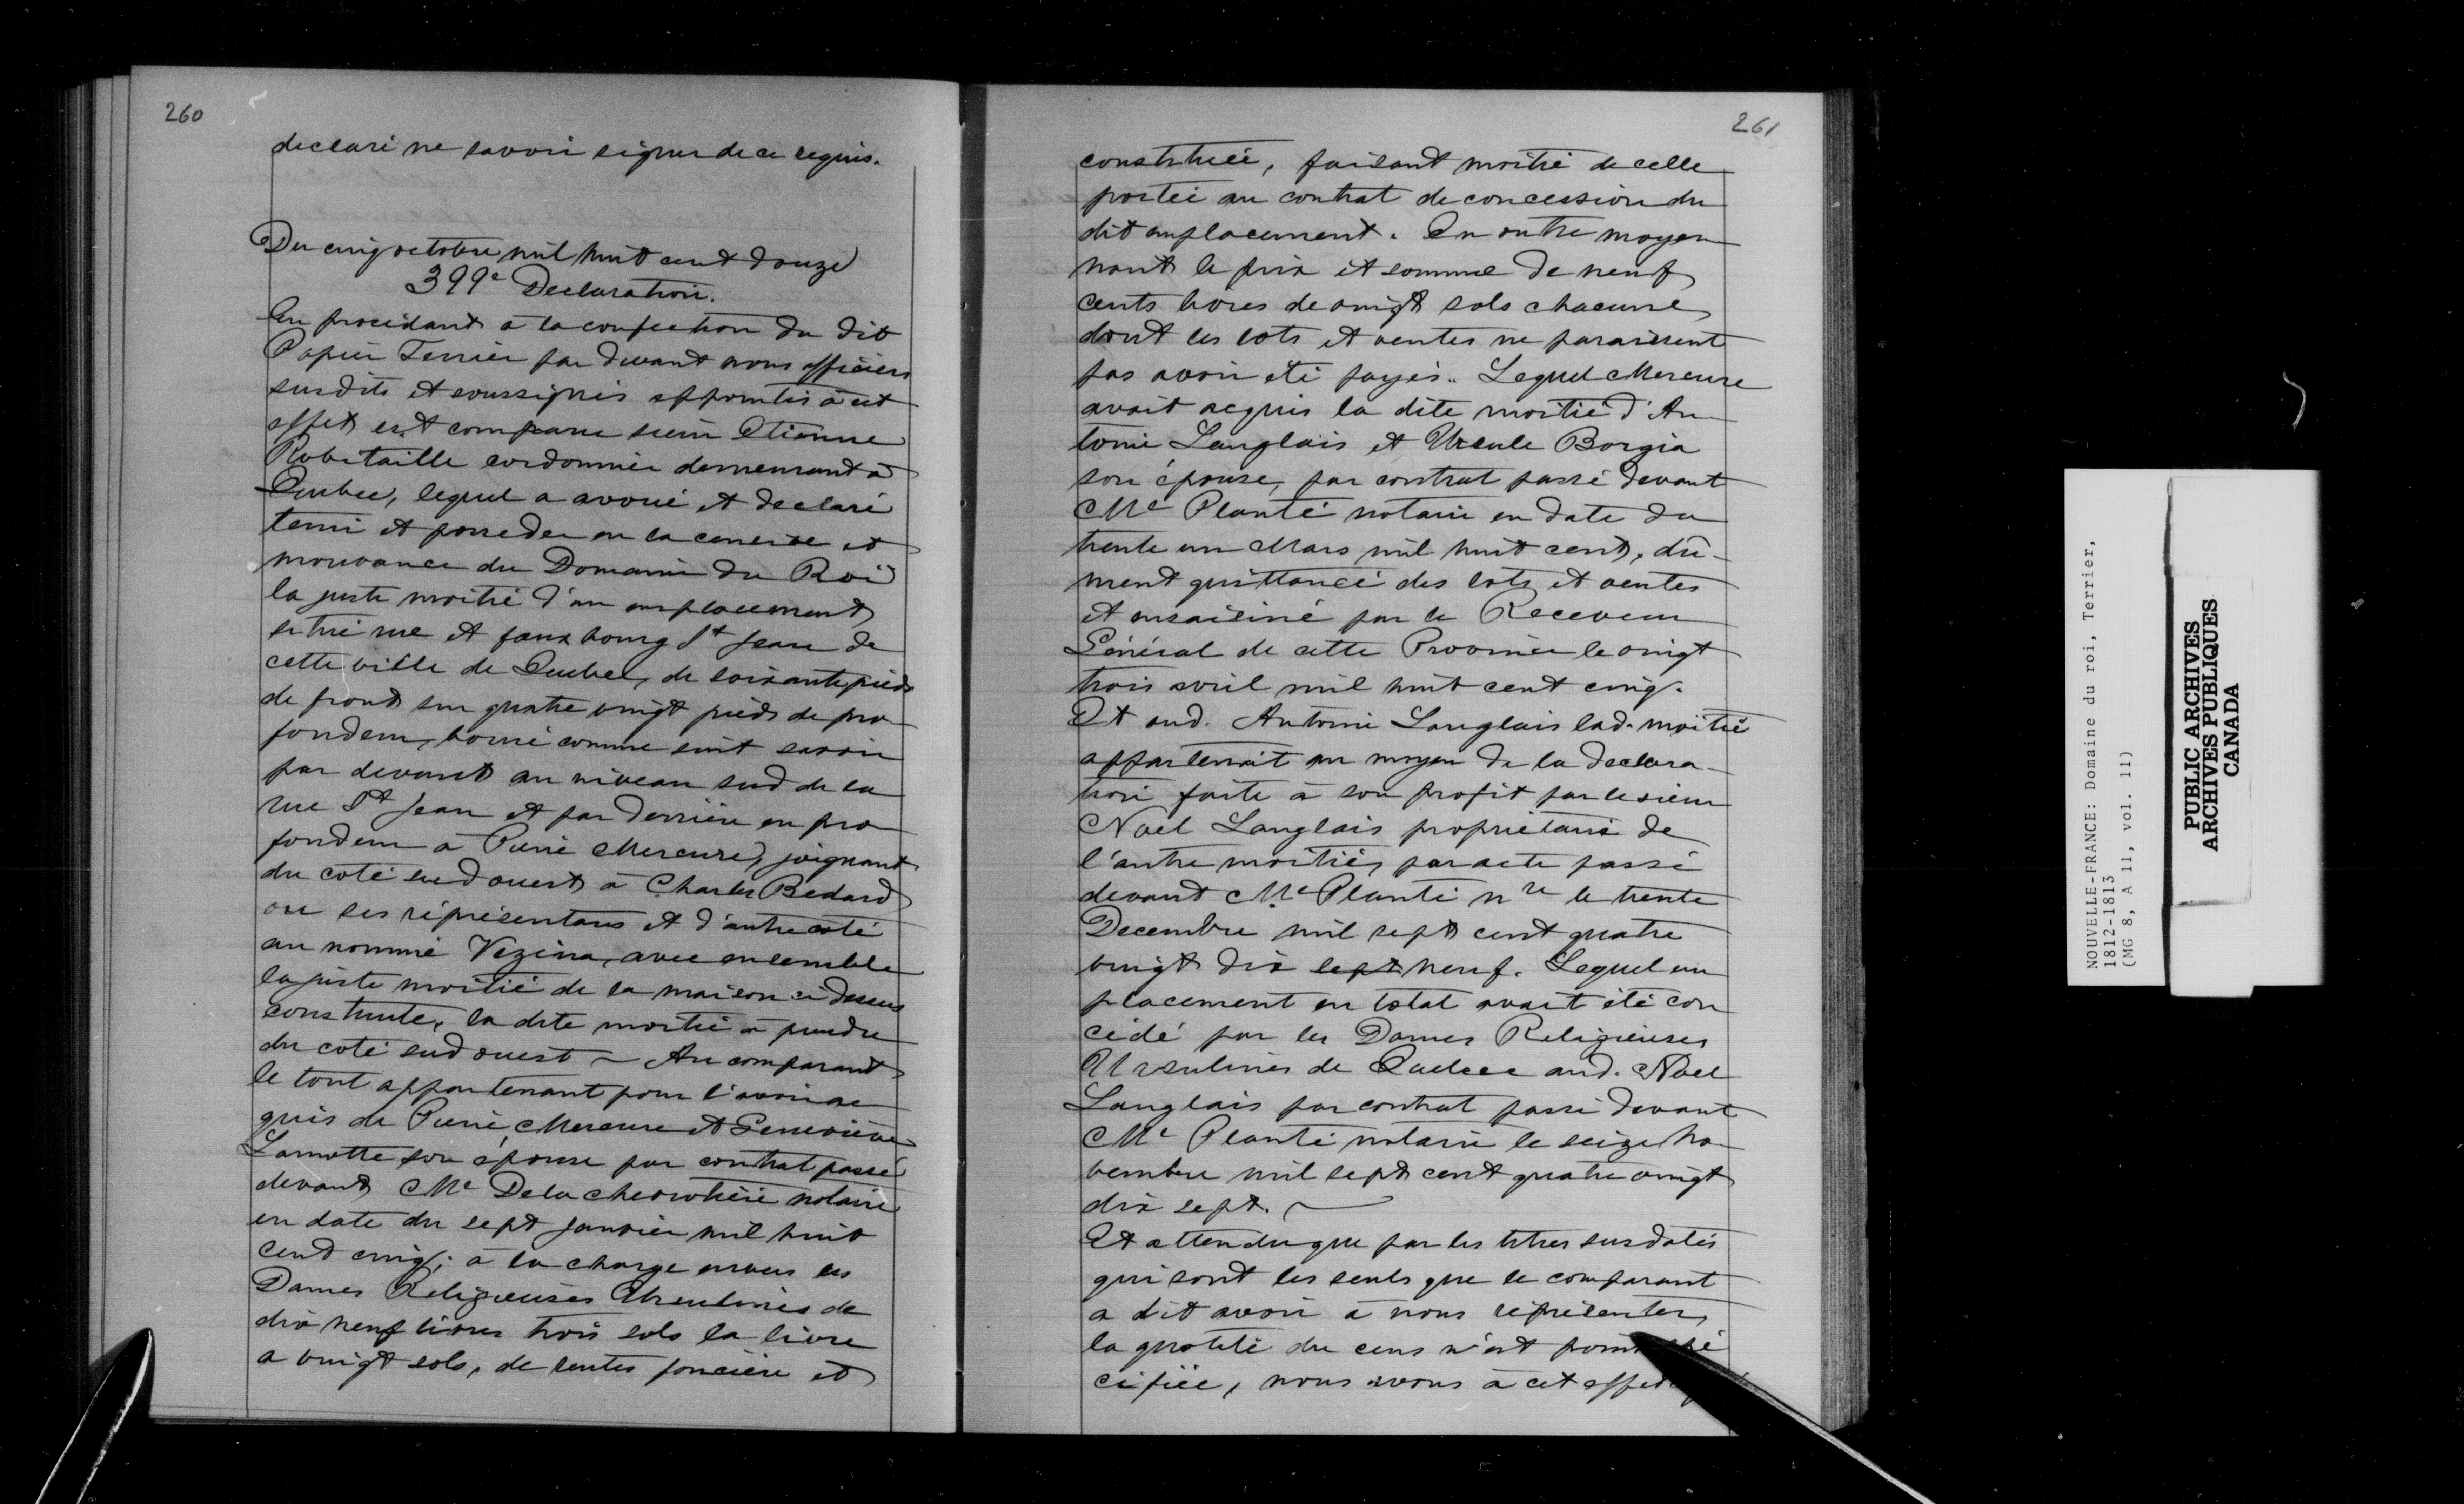 260
declaré ne savoir signer de ce requis.
Du cinq octobre mil huit cent douze
399e Declaration.
En procédant à la confection du dit
Papier Terrier par devant nous officiers
susdits et soussignés appointés à cet
effet est comparu sieur Etienne
Robitaille cordonnier demeurant à
Quebec, lequel a avoué et declaré
tenir et posseder en la censive et
mouvance du Domaine du Roi
la juste moitié d'un emplacement
situé rue et fauxbourg St Jean de
cette ville de Quebec, de soixante pieds
de front sur quatre vingt pieds de pro
fondeur, borné comme suit savoir
par devant au niveau sud de la
rue St Jean et par derrière en pro
fondeur à Pierre Mercure, joignant
du coté sud ouest à Charles Bedard
ou ses réprésentans et d'autre coté
au nommé Vezina, avec ensemble
la juste moitié de la maison ci dessus
construite, la dite moitié à prendre
du coté sud ouest ~ Au comparant
le tout appartenant pour l'avoir ac
quis de Pierre Mercure et Geneviève
Lamotte son épouse par contrat passé
devant Me Dela chevrotière notaire
en date du sept janvier mil huit
cent cinq; à la charge envers les
Dames Religieuses Ursulines de
dix neuf livres trois sols la livre
a vingt sols, de rentes foncière et
261
constituée, faisant moitié de celle
portée au contrat de concession du
dit emplacement. En outre moyen
nant le prix et somme de neuf
cents livres de vingt sols chacune
dont les lots et ventes ne paraissent
pas avoir été payés. Lequel Mercure
avait acquis la dite moitié d'An-
toine Langlais et Ursule Borgia
son épouse, par contrat passé devant
Me Planté notaire en date du
trente un Mars mil huit cent, dû-
ment quittancé des lots et ventes
et ensaisiné par le Receveur
Général de cette Province le vingt
trois avril mil huit cent cinq.
Et aud. Antoine Langlais lad. moitié
appartenait au moyen de la declara-
tion faite à son profit par le sieur
Noel Langlais propriétaire de
l'autre moitié, par acte passé
devant Me Planté nre le trente
Decembre mil sept cent quatre
vingt dix sept neuf. Lequel em
placement en total avait été con
cédé par les Dames Religieuses
Ursulines de Quebec aud. Noel
Langlais par contrat passé devant
Me Planté notaire le seize no
vembre mil sept cent quatre vingt
dix sept. ~
Et attendu que par les titres susdatés
qui sont les seuls que le comparant
a dit avoir à nous réprésenter,
la quotité du cens n'est point spé
cifiée, nous avons à cet effet
NOUVELLE-FRANCE: Domaine du roi, Terrier,
1812-1813
(MG 8, A 11, vol. 11)
PUBLIC ARCHIVES
ARCHIVES PUBLIQUES
CANADA